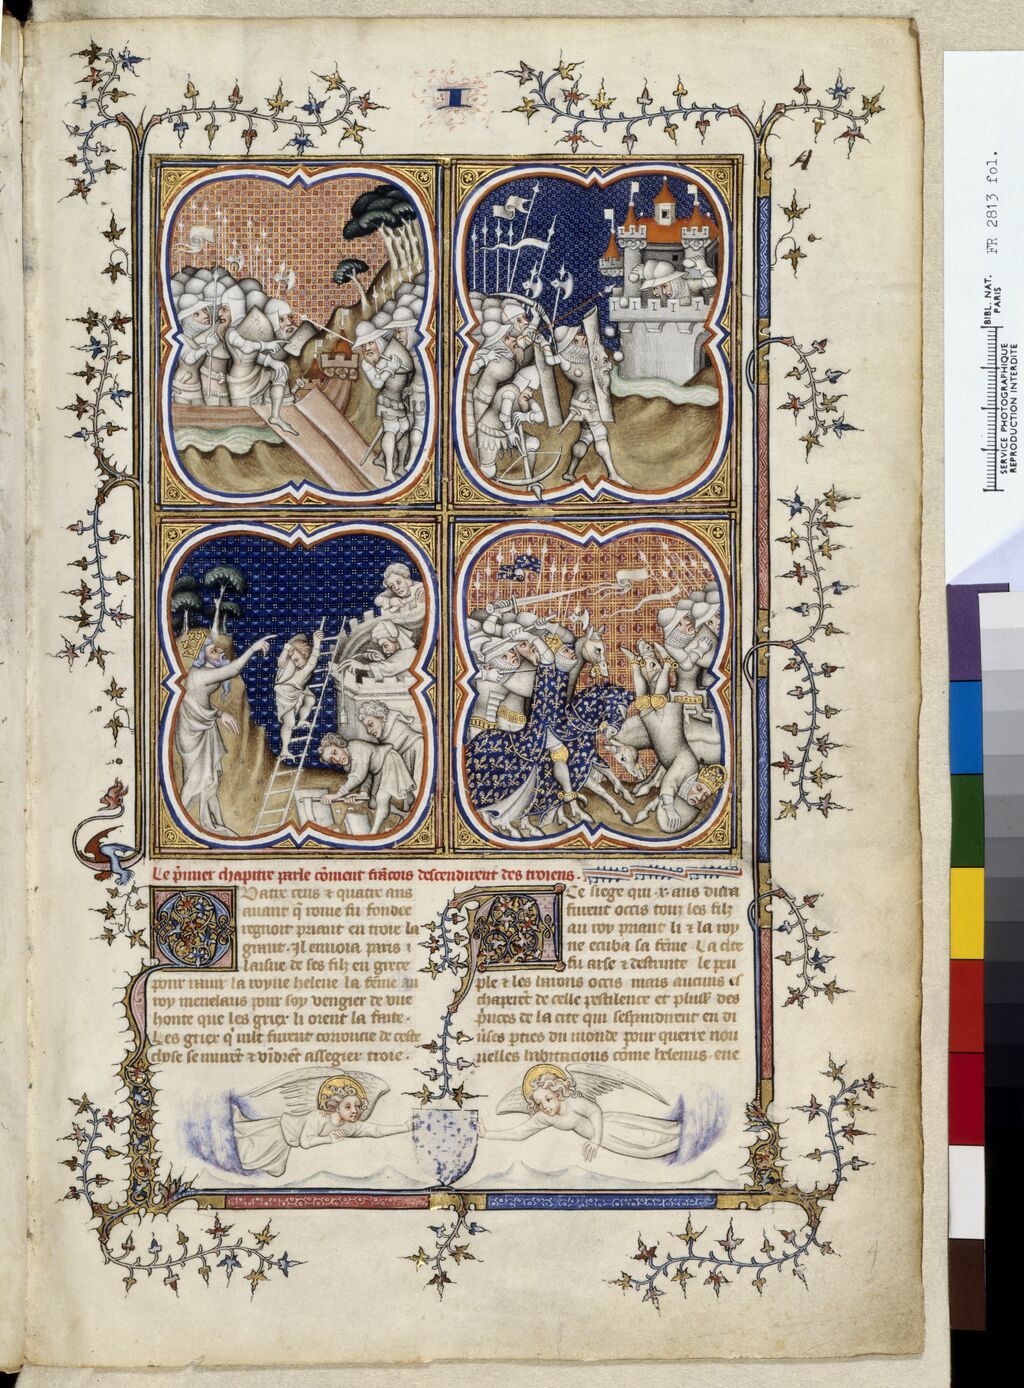 I
A
Le p̃mier chapitre parle cõment frãcois descendirent des troiens.
Quatre cens & quatre ans
auant q̃ rome fu fondee
regnoit priant en troie la
grant. Il enuoia paris &
laisne de ses filz en grece
pour rauir la royne helene la fẽme au
roy menelaus pour soy vengier de vne
honte que les griex li orent la faite.
Les griex q̃ mlt furent corroucie de ceste
chose se murẽt & vindrẽt assegier troie.
A ce siege qui .x. ans dura
furent occis touz les filz
au roy priant li & la roy
ne ecuba sa fẽme. La cite
fu arse & destruite le peu
ple & les barons occis. mais aucuns es
chaperẽt de celle pestilence et plus̃ des
p̃nces de la cite qui sespandirent en di
uerses pties du monde pour querre nou
uelles habitacions cõme helenus. ene
4
FR 2813 fol.
BIBL. NAT.
PARIS
SERVICE PHOTOGRAPHIQUE
REPRODUCTION INTERDITE